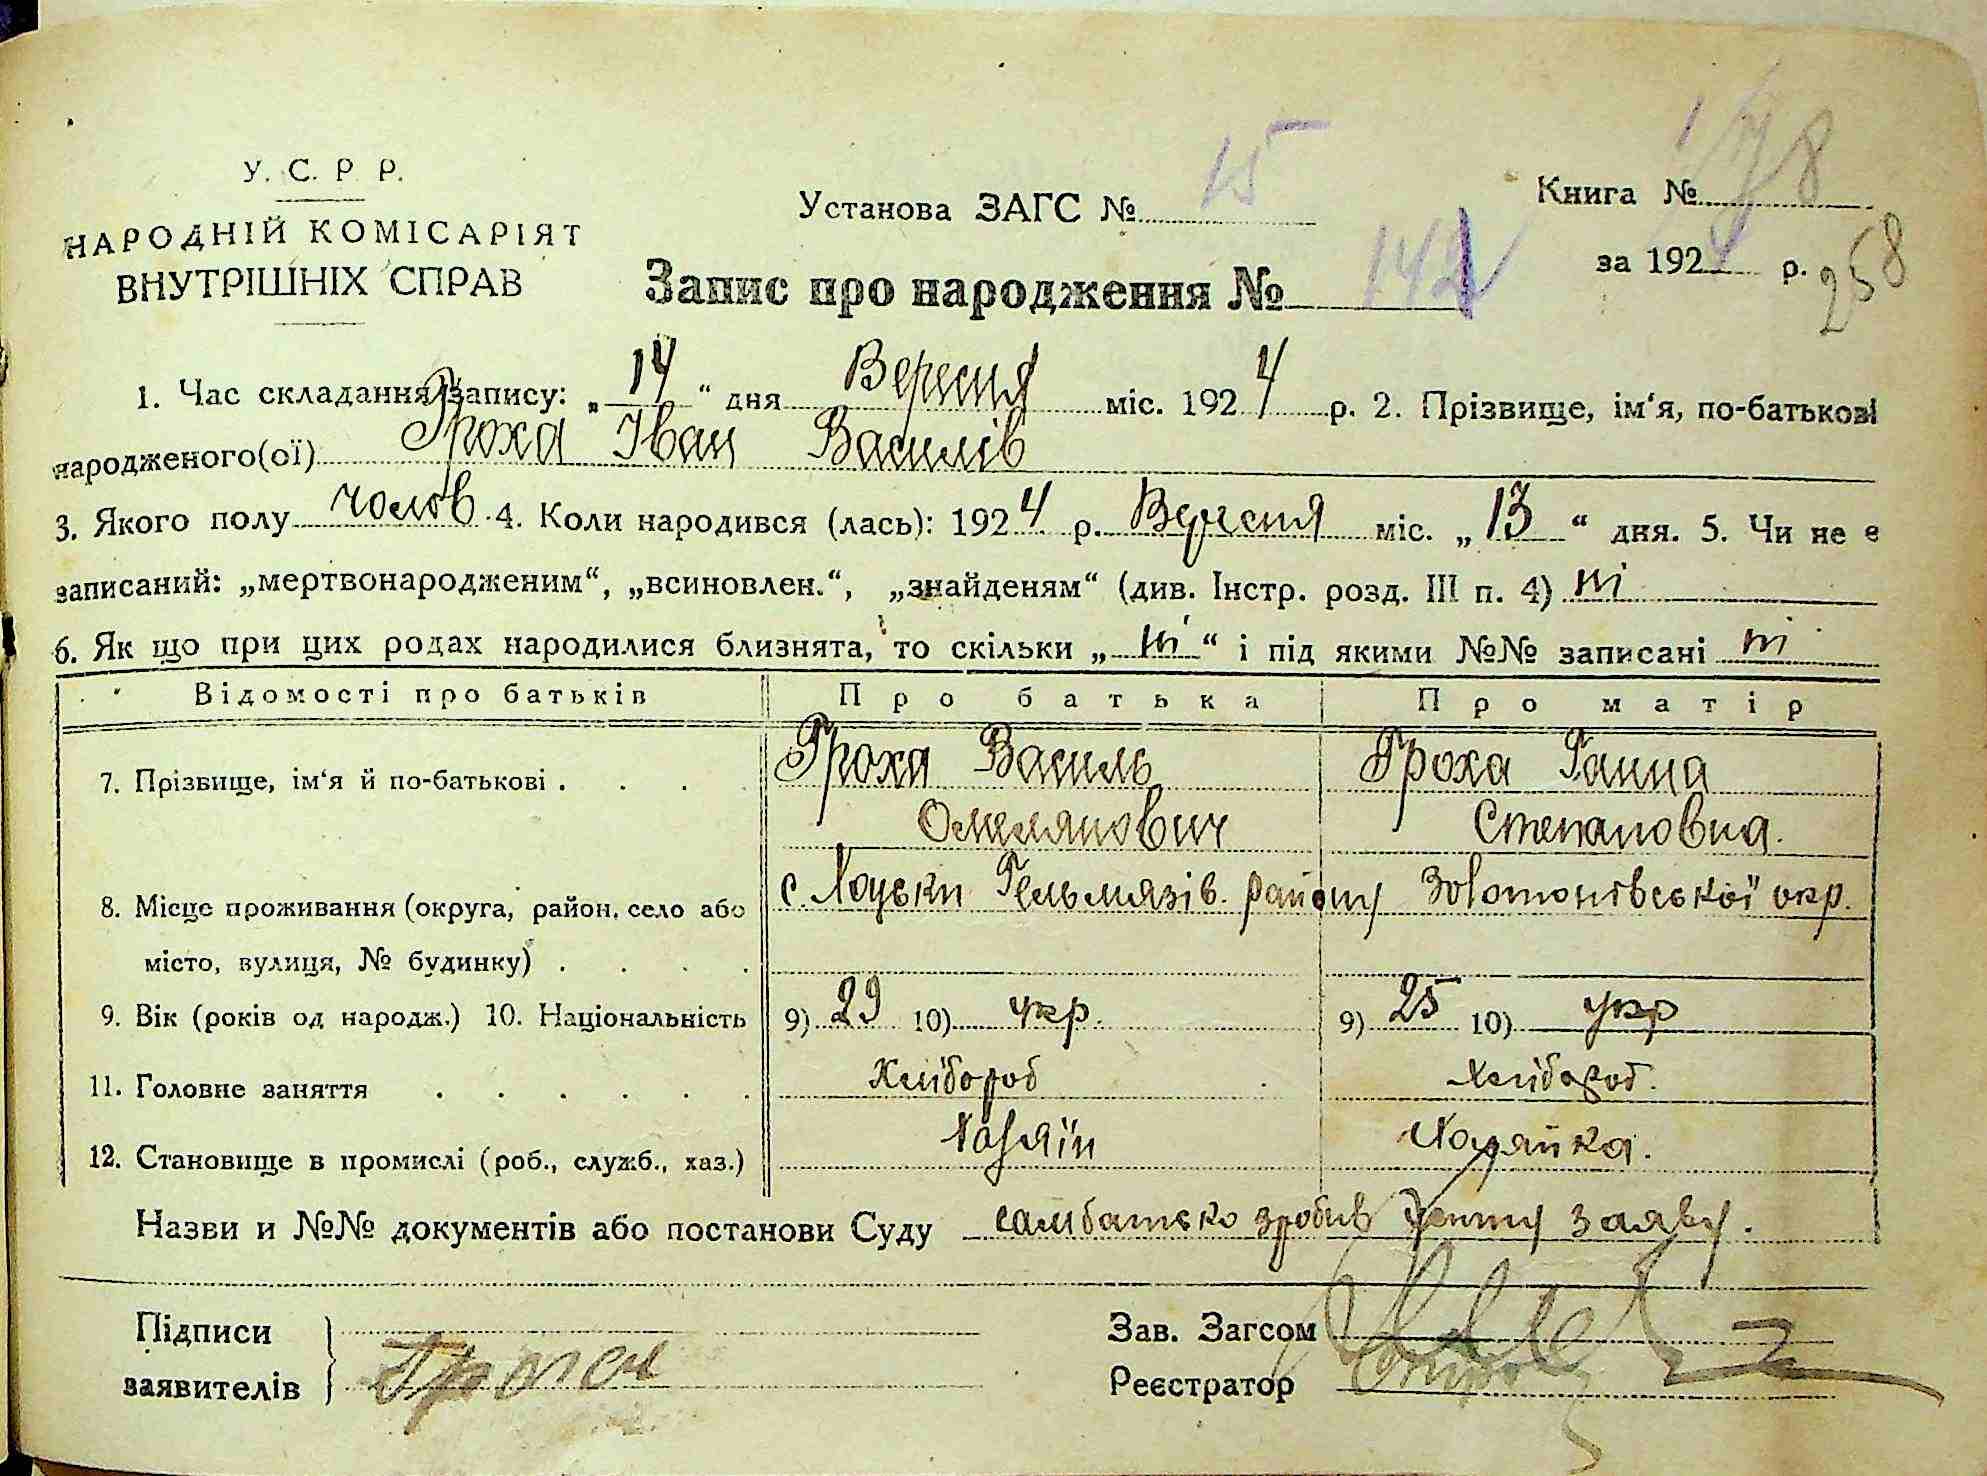 У. С. Р. Р.
НАРОДНІЙ КОМІСАРІЯТ
ВНУТРІШНІХ СПРАВ
Установа ЗАГС № 15
Книга №
за 1924 р.
258
Запис про народження № 142
1. Час складання запису: „14“ дня Вересня міс. 1924 р. 2. Прізвище, ім‘я, по-батькові
народженого(ої) Гроха Іван Василів
3. Якого полу чолов 4. Коли народився (лась): 1924 р. Вересня міс. „13“ дня. 5. Чи не є
записаний: „мертвонародженим“, „всиновлен.“, „знайденям“ (див. Інстр. розд. III п. 4) ні
6. Як що при цих родах народилися близнята, то скільки „ні“ і під якими №№ записані ні
Відомості про батьків Про батька Про матір
7. Прізвище, ім‘я й по-батькові . . . . Гроха Василь Гроха Ганна
Омелянович Степановна.
8. Місце проживання (округа, район, село або с. Хоцьки Гельмязів. району Золотонівської окр.
місто, вулиця, № будинку) . . . .
9. Вік (років од народж.) 10. Національність 9) 29 10) укр. 9) 25 10) укр
11. Головне заняття . . . . . . Хлібороб Хлібороб.
12. Становище в промислі (роб., служб., хаз.) Хазяїн Хазяйка.
Назви и №№ документів або постанови Суду сам батько зробив устну заяву.
Підписи
заявителів
Гроха
Зав. Загсом
Реєстратор